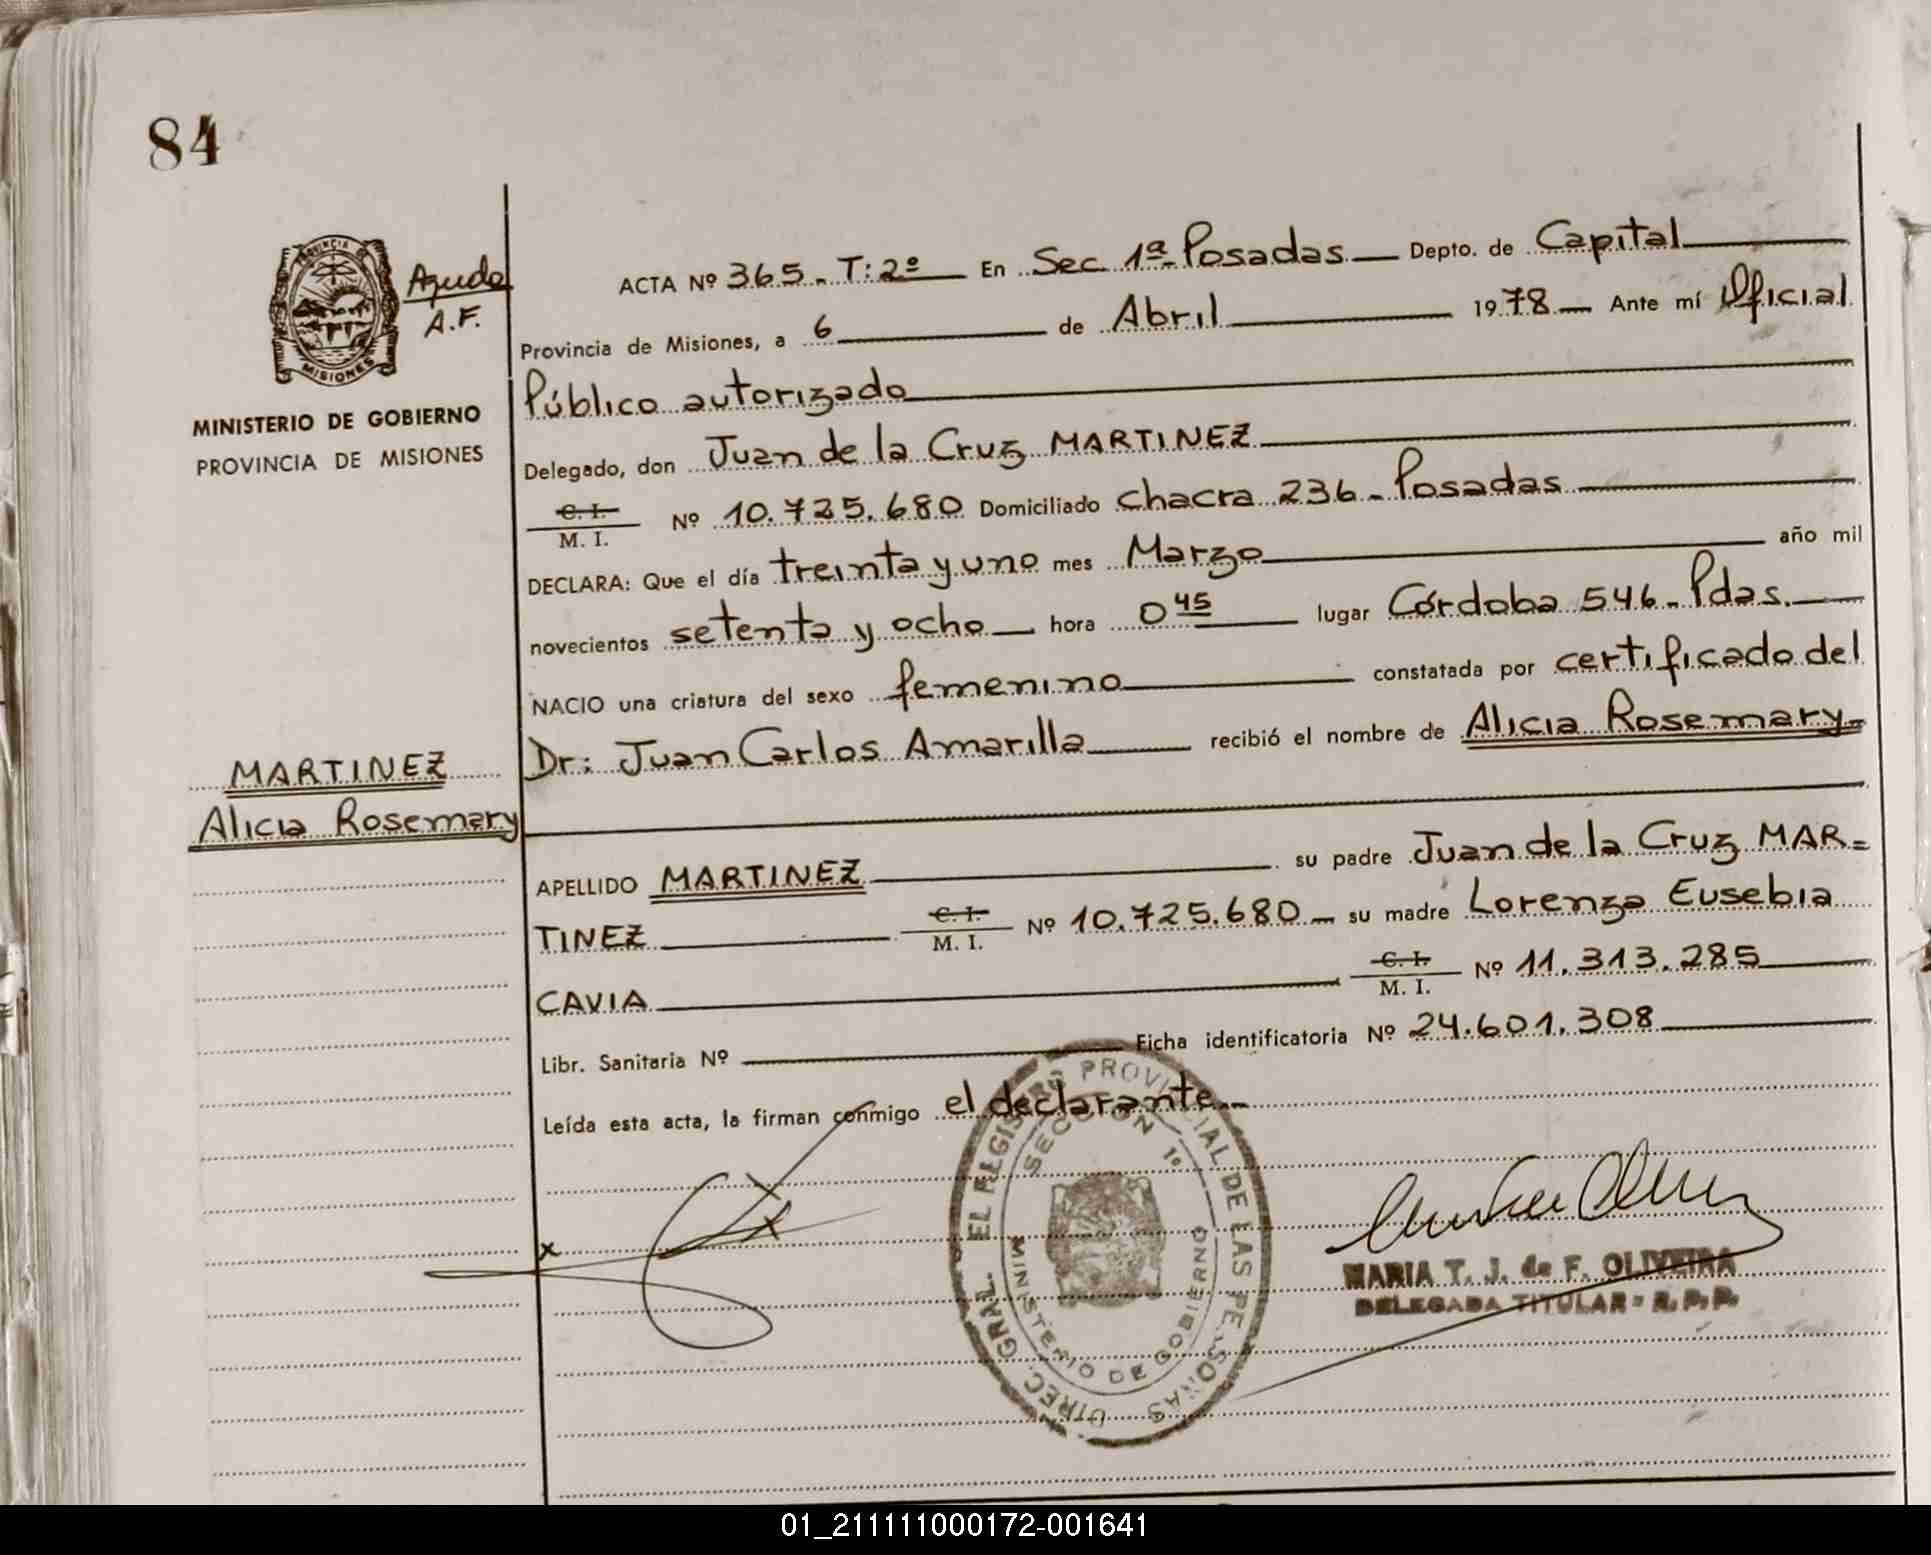 84
PROVINCIA DE
MISIONES
Ayuda
A.F.
MINISTERIO DE GOBIERNO
PROVINCIA DE MISIONES
MARTINEZ
Alicia Rosemary
ACTA Nº 365. T: 2º En Sec 1ª Posadas Depto. de Capital
Provincia de Misiones, a 6 de Abril 1978 Ante mí Oficial
Público autorizado
Delegado, don Juan de la Cruz MARTINEZ
C. I.
M. I. Nº 10.725.680 Domiciliado Chacra 236 - Posadas
DECLARA: Que el día treinta y uno mes Marzo año mil
novecientos setenta y ocho hora 0 45 lugar Córdoba 546 - Pdas.
NACIO una criatura del sexo femenino constatada por certificado del
Dr: Juan Carlos Amarilla recibió el nombre de Alicia Rosemary
APELLIDO MARTINEZ su padre Juan de la Cruz MAR=
TINEZ C. I. M. I. Nº 10.725.680 su madre Lorenza Eusebia
CAVIA C. I. M. I. Nº 11.313.285
Libr. Sanitaria Nº Ficha identificatoria Nº 24.601.308
Leída esta acta, la firman conmigo el declarante
DIREC. GRAL. EL REGISTRO PROVINCIAL DE LAS PERSONAS
SECCION 1º
MINISTERIO DE GOBIERNO
MARIA T. J. de F. OLIVEIRA
DELEGADA TITULAR - R. P. P.
01_211111000172-001641